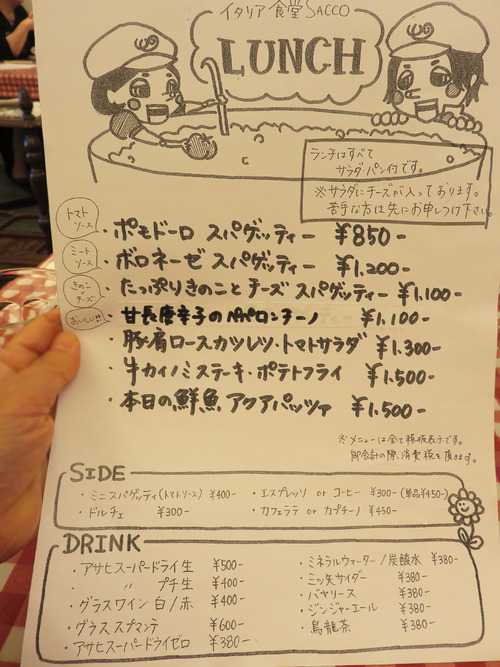 イタリア食堂SACCO
LUNCH
ランチはすべて
サラダ・パン付です。
※サラダにチーズが入っております。
苦手な方は先にお申しつけ下さい。
トマトソース ・ポモドーロ スパゲッティー ¥850-
ミートソース ・ボロネーゼ スパゲッティー ¥1.200-
きのこ・チーズ ・たっぷりきのことチーズ スパゲッティー ¥1.100-
おいしい!! ・甘長唐辛子のペペロンチーノ ¥1.100-
・豚肩ロースカツレツ・トマトサラダ ¥1.300-
・牛カイノミステーキ・ポテトフライ ¥1.500-
・本日の鮮魚 アクアパッツァ ¥1.500-
※メニューは全て税抜表示です。
御会計の際、消費税を頂きます。
SIDE
・ミニスパゲッティ(トマトソース) ¥400- ・エスプレッソ or コーヒー ¥300-(単品¥450-)
・ドルチェ ¥300- ・カフェラテ or カプチーノ ¥450-
DRINK
・アサヒスーパードライ生 ¥500-
・ 〃 プチ生 ¥400-
・グラスワイン 白/赤 ¥400-
・グラス スプマンテ ¥600-
・アサヒスーパードライゼロ ¥380-
・ミネラルウォーター/炭酸水 ¥380-
・三ッ矢サイダー ¥380-
・バヤリース ¥380-
・ジンジャーエール ¥380-
・烏龍茶 ¥380-